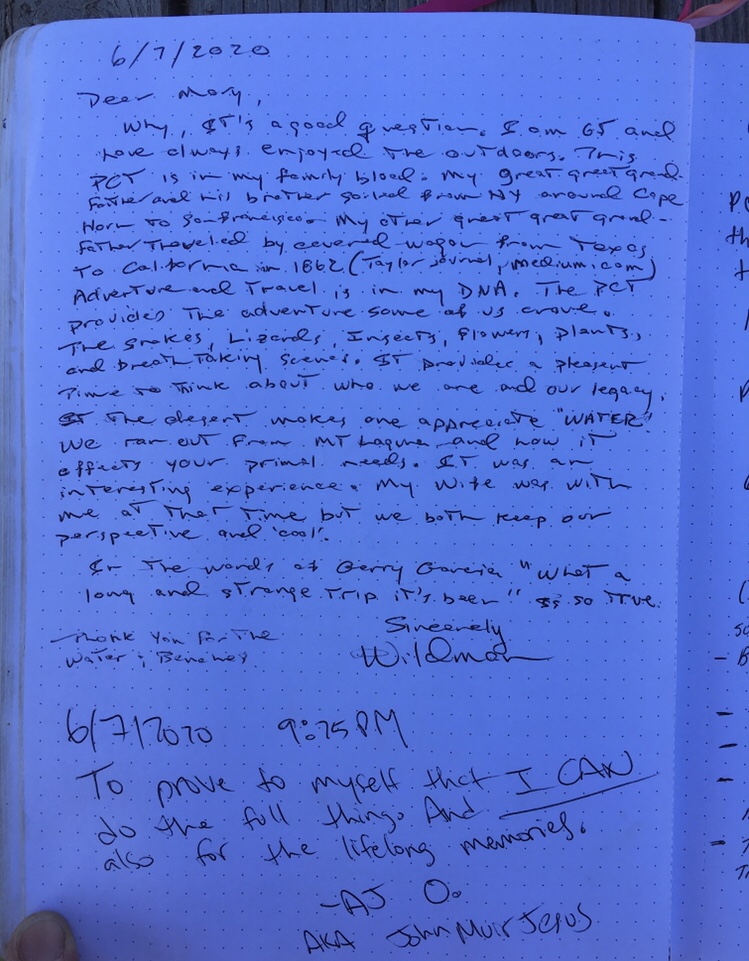 6/7/2020
Dear Mary,
Why, IT's a good question. I am 65 and
have always enjoyed The outdoors. This
PCT is in my family blood. My great great grand-
father and his brother sailed from NY around Cape
Horn To San Francisco. My other great great grand-
father Traveled by covered wagon from Texas
To California in 1862 (Taylor journal, medium.com)
Adventure and Travel is in my DNA. The PCT
provides The adventure some of us crave.
The snakes, Lizards, Insects, Flowers, plants,
and breath Taking scenes. IT provides a pleasent
Time to Think about who we are and our legacy.
The desert makes one appreciate "WATER"
We ran out From MT Laguna and how it
effects your primal needs. IT was an
interesting experience. My Wife was with
me at That Time but we both keep our
perspective and 'cool'.
In The words of Gerry Garcia "What a
long and strange Trip it's been" is so True.
Sincerely
Thank You For The
Water &
Wildman
6/7/2020 9:25 PM
To prove to myself that I CAN
do the full thing. And
also for the lifelong memories.
-AJ O.
AKA John Muir Jesus